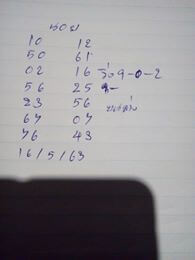 ซอย
10 12
50 61
02 16 วิ่ง 9-0-2
56 25
23 56
67 07
76 43
16/5/63